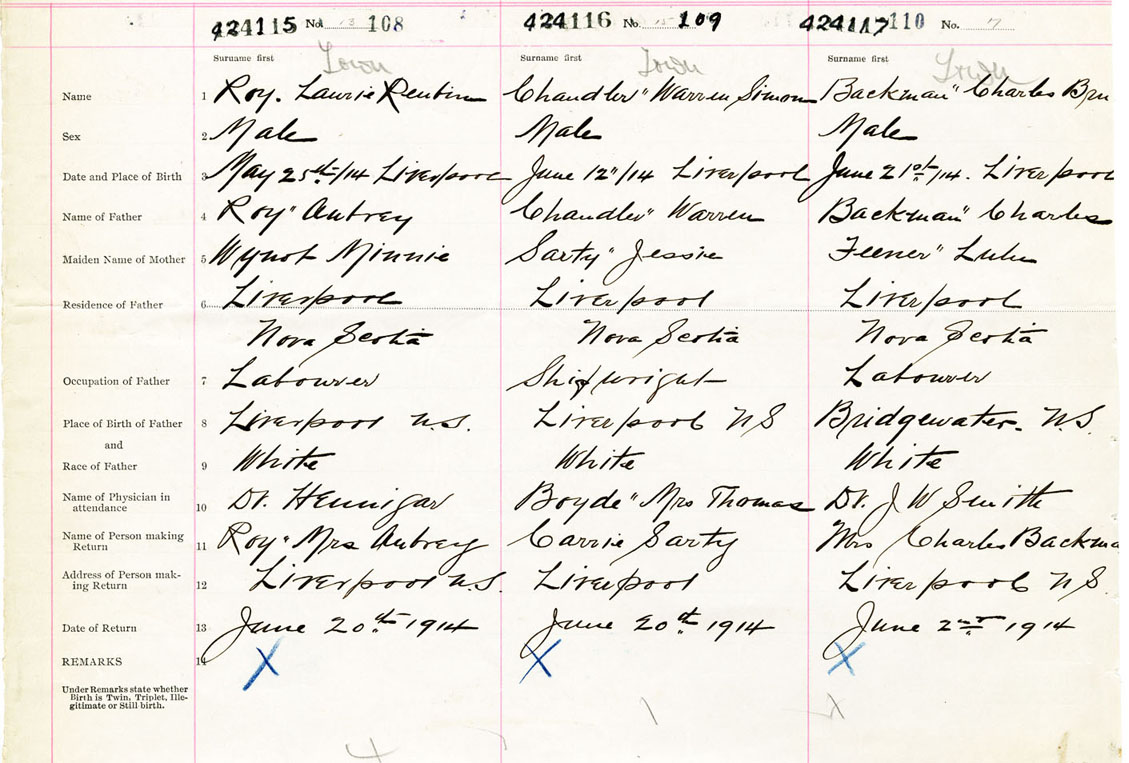 424115 No. 13 108 424116 No. 15 109 424117 110 No. 7
Town Town Town
Surname first Surname first Surname first
Name 1 Roy. Laurie Reubin Chandler" Warren Simon Backman" Charles Bru
Sex 2 Male Male Male
Date and Place of Birth 3 May 25th/14 Liverpool June 12"/14 Liverpool June 21st/14. Liverpool
Name of Father 4 Roy" Aubrey Chandler" Warren Backman" Charles
Maiden Name of Mother 5 Wynot Minnie Sarty" Jessie Feener" Lulu
Residence of Father 6 Liverpool Liverpool Liverpool
Nova Scotia Nova Scotia Nova Scotia
Occupation of Father 7 Labourer Shipwright Labourer
Place of Birth of Father 8 Liverpool N.S. Liverpool NS Bridgewater. N.S.
and
Race of Father 9 White White White
Name of Physician in
attendance 10 Dr. Hennigar Boyde" Mrs Thomas Dr. J W Smith
Name of Person making
Return 11 Roy" Mrs Aubrey Carrie Sarty Mrs Charles Backma
Address of Person mak-
ing Return 12 Liverpool N.S. Liverpool Liverpool N.S.
Date of Return 13 June 20th 1914 June 20th 1914 June 2nd 1914
REMARKS 14 X X X
Under Remarks state whether
Birth is Twin, Triplet, Ille-
gitimate or Still birth.